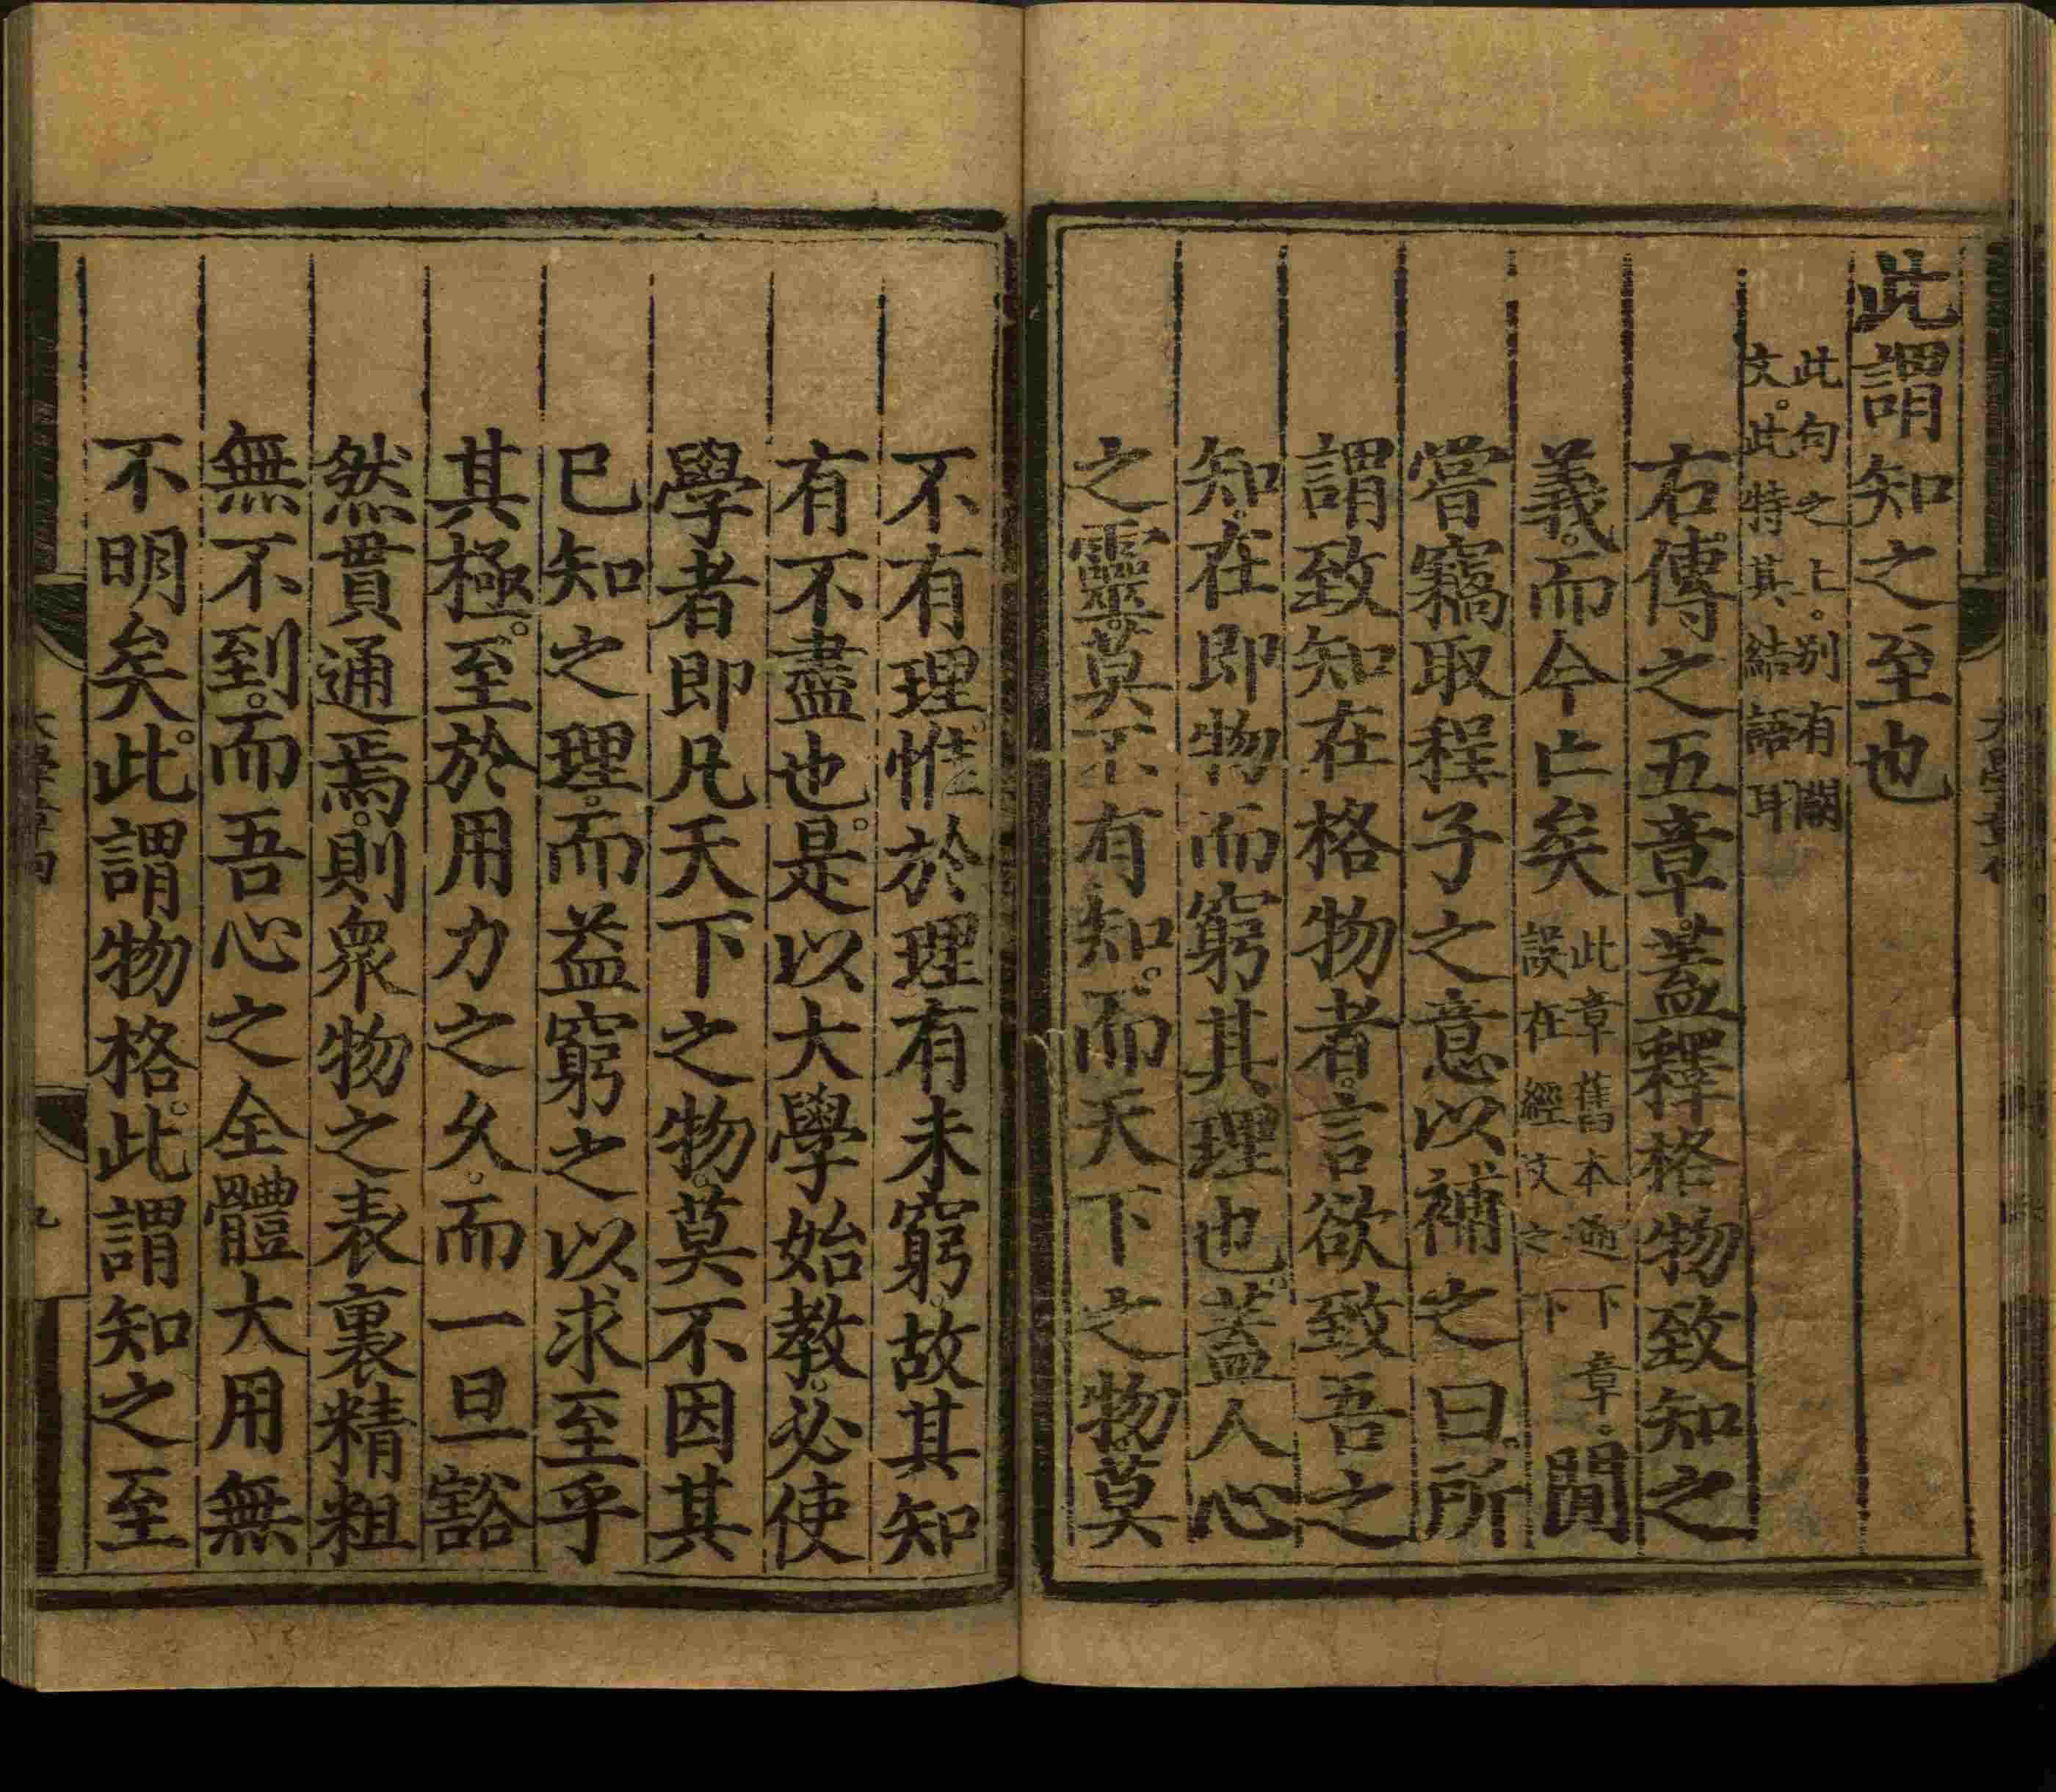 此謂知之至也
此句之上。别有闕
文。此特其結語耳
右傳之五章。蓋釋格物致知之
義。而今亡矣
此章舊本通下章。
誤在經文之下
閒
嘗竊取程子之意以補之曰。所
謂致知在格物者。言欲致吾之
知。在即物而窮其理也。蓋人心
之靈。莫不有知。而天下之物。莫
不有理。惟於理有未窮。故其知
有不盡也。是以大學始教。必使
學者即凡天下之物。莫不因其
已知之理。而益窮之以求至乎
其極。至於用力之久。而一旦豁
然貫通焉。則衆物之表裏精粗
無不到。而吾心之全體大用無
不明矣。此謂物格。此謂知之至
九